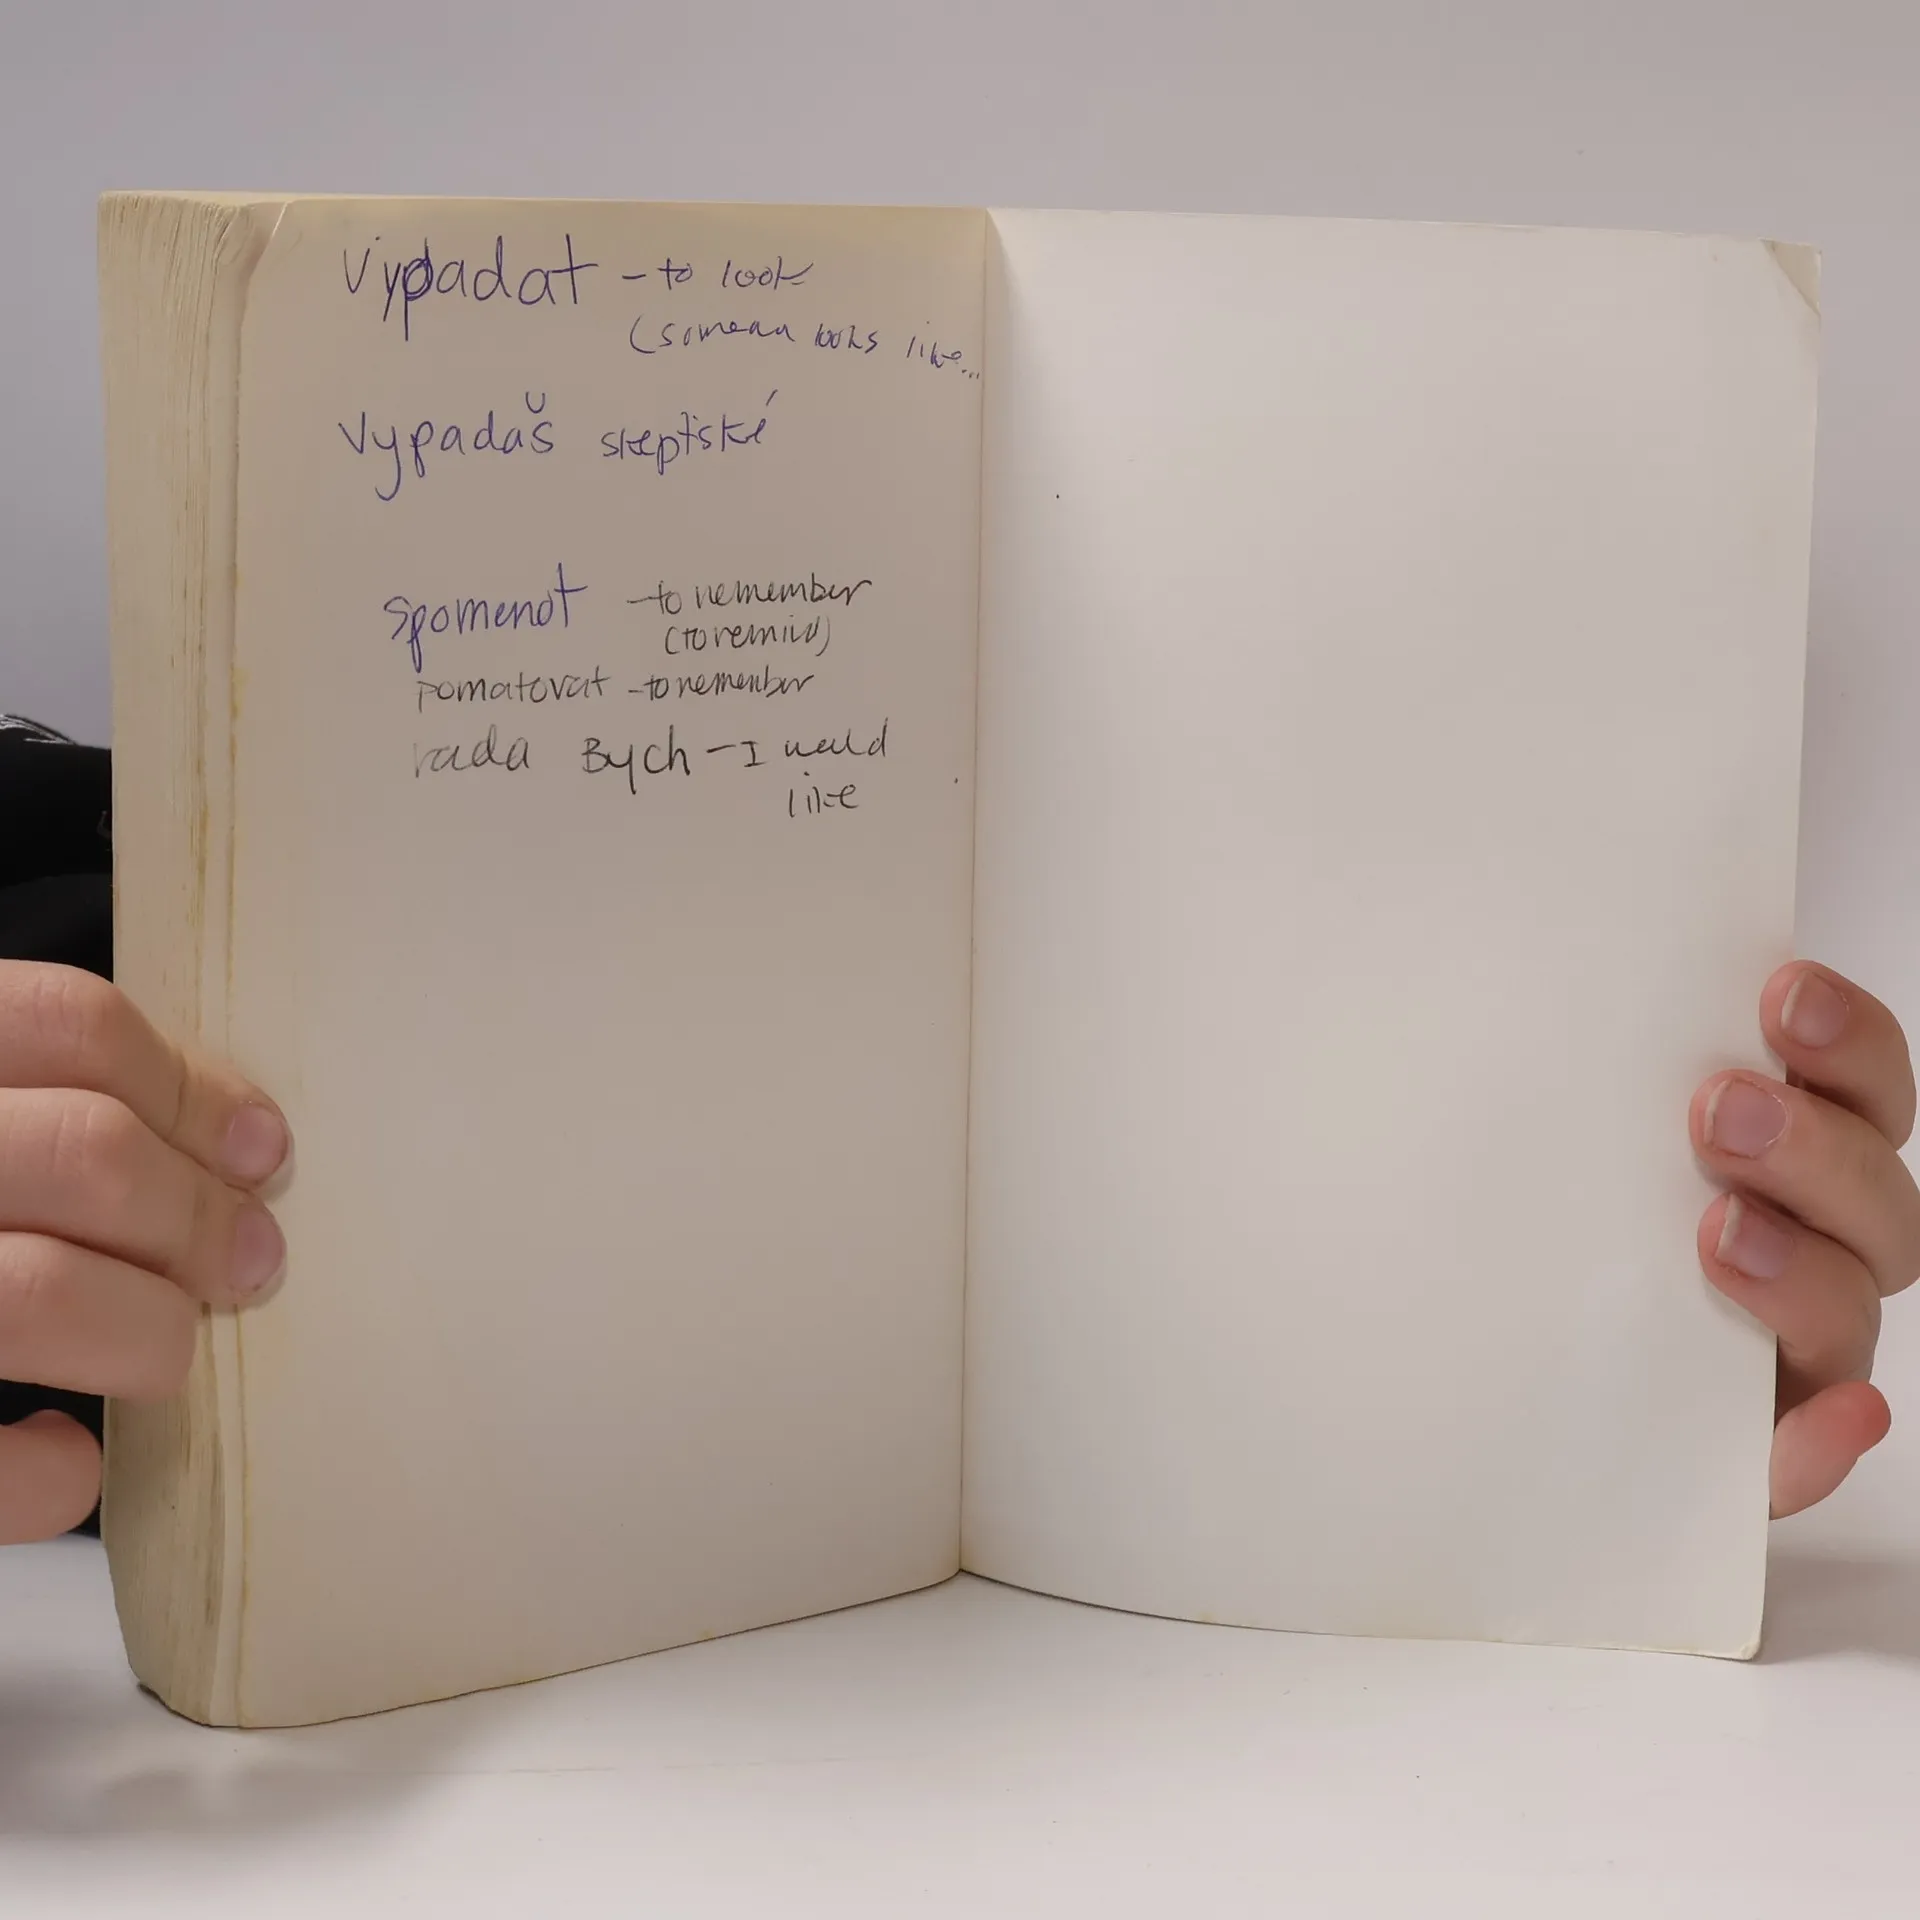 Vypadat - to look
(someon looks like...
Vypadaš skeptiské
spomenot - to remember
(to remind)
pomatovat - to remember
rada Bych - I would
like